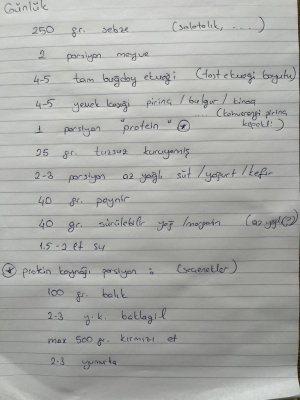 Günlük
250 gr. sebze (salatalık, ....)
2 porsiyon meyve
4-5 tam buğday ekmeği (tost ekmeği boyutu)
4-5 yemek kaşığı pirinç / bulgur / kinoa
.... (
kepekli)
1 porsiyon "protein" *
25 gr. tuzsuz kuruyemiş
2-3 porsiyon az yağlı süt / yoğurt / kefir
40 gr. peynir
40 gr. sürülebilir yağ / margarin (az yağlı)
1.5-2 lt su
* protein kaynağı porsiyon : (seçenekler)
100 gr. balık
2-3 y.k. baklagil
max 500 gr. kırmızı et
2-3 yumurta